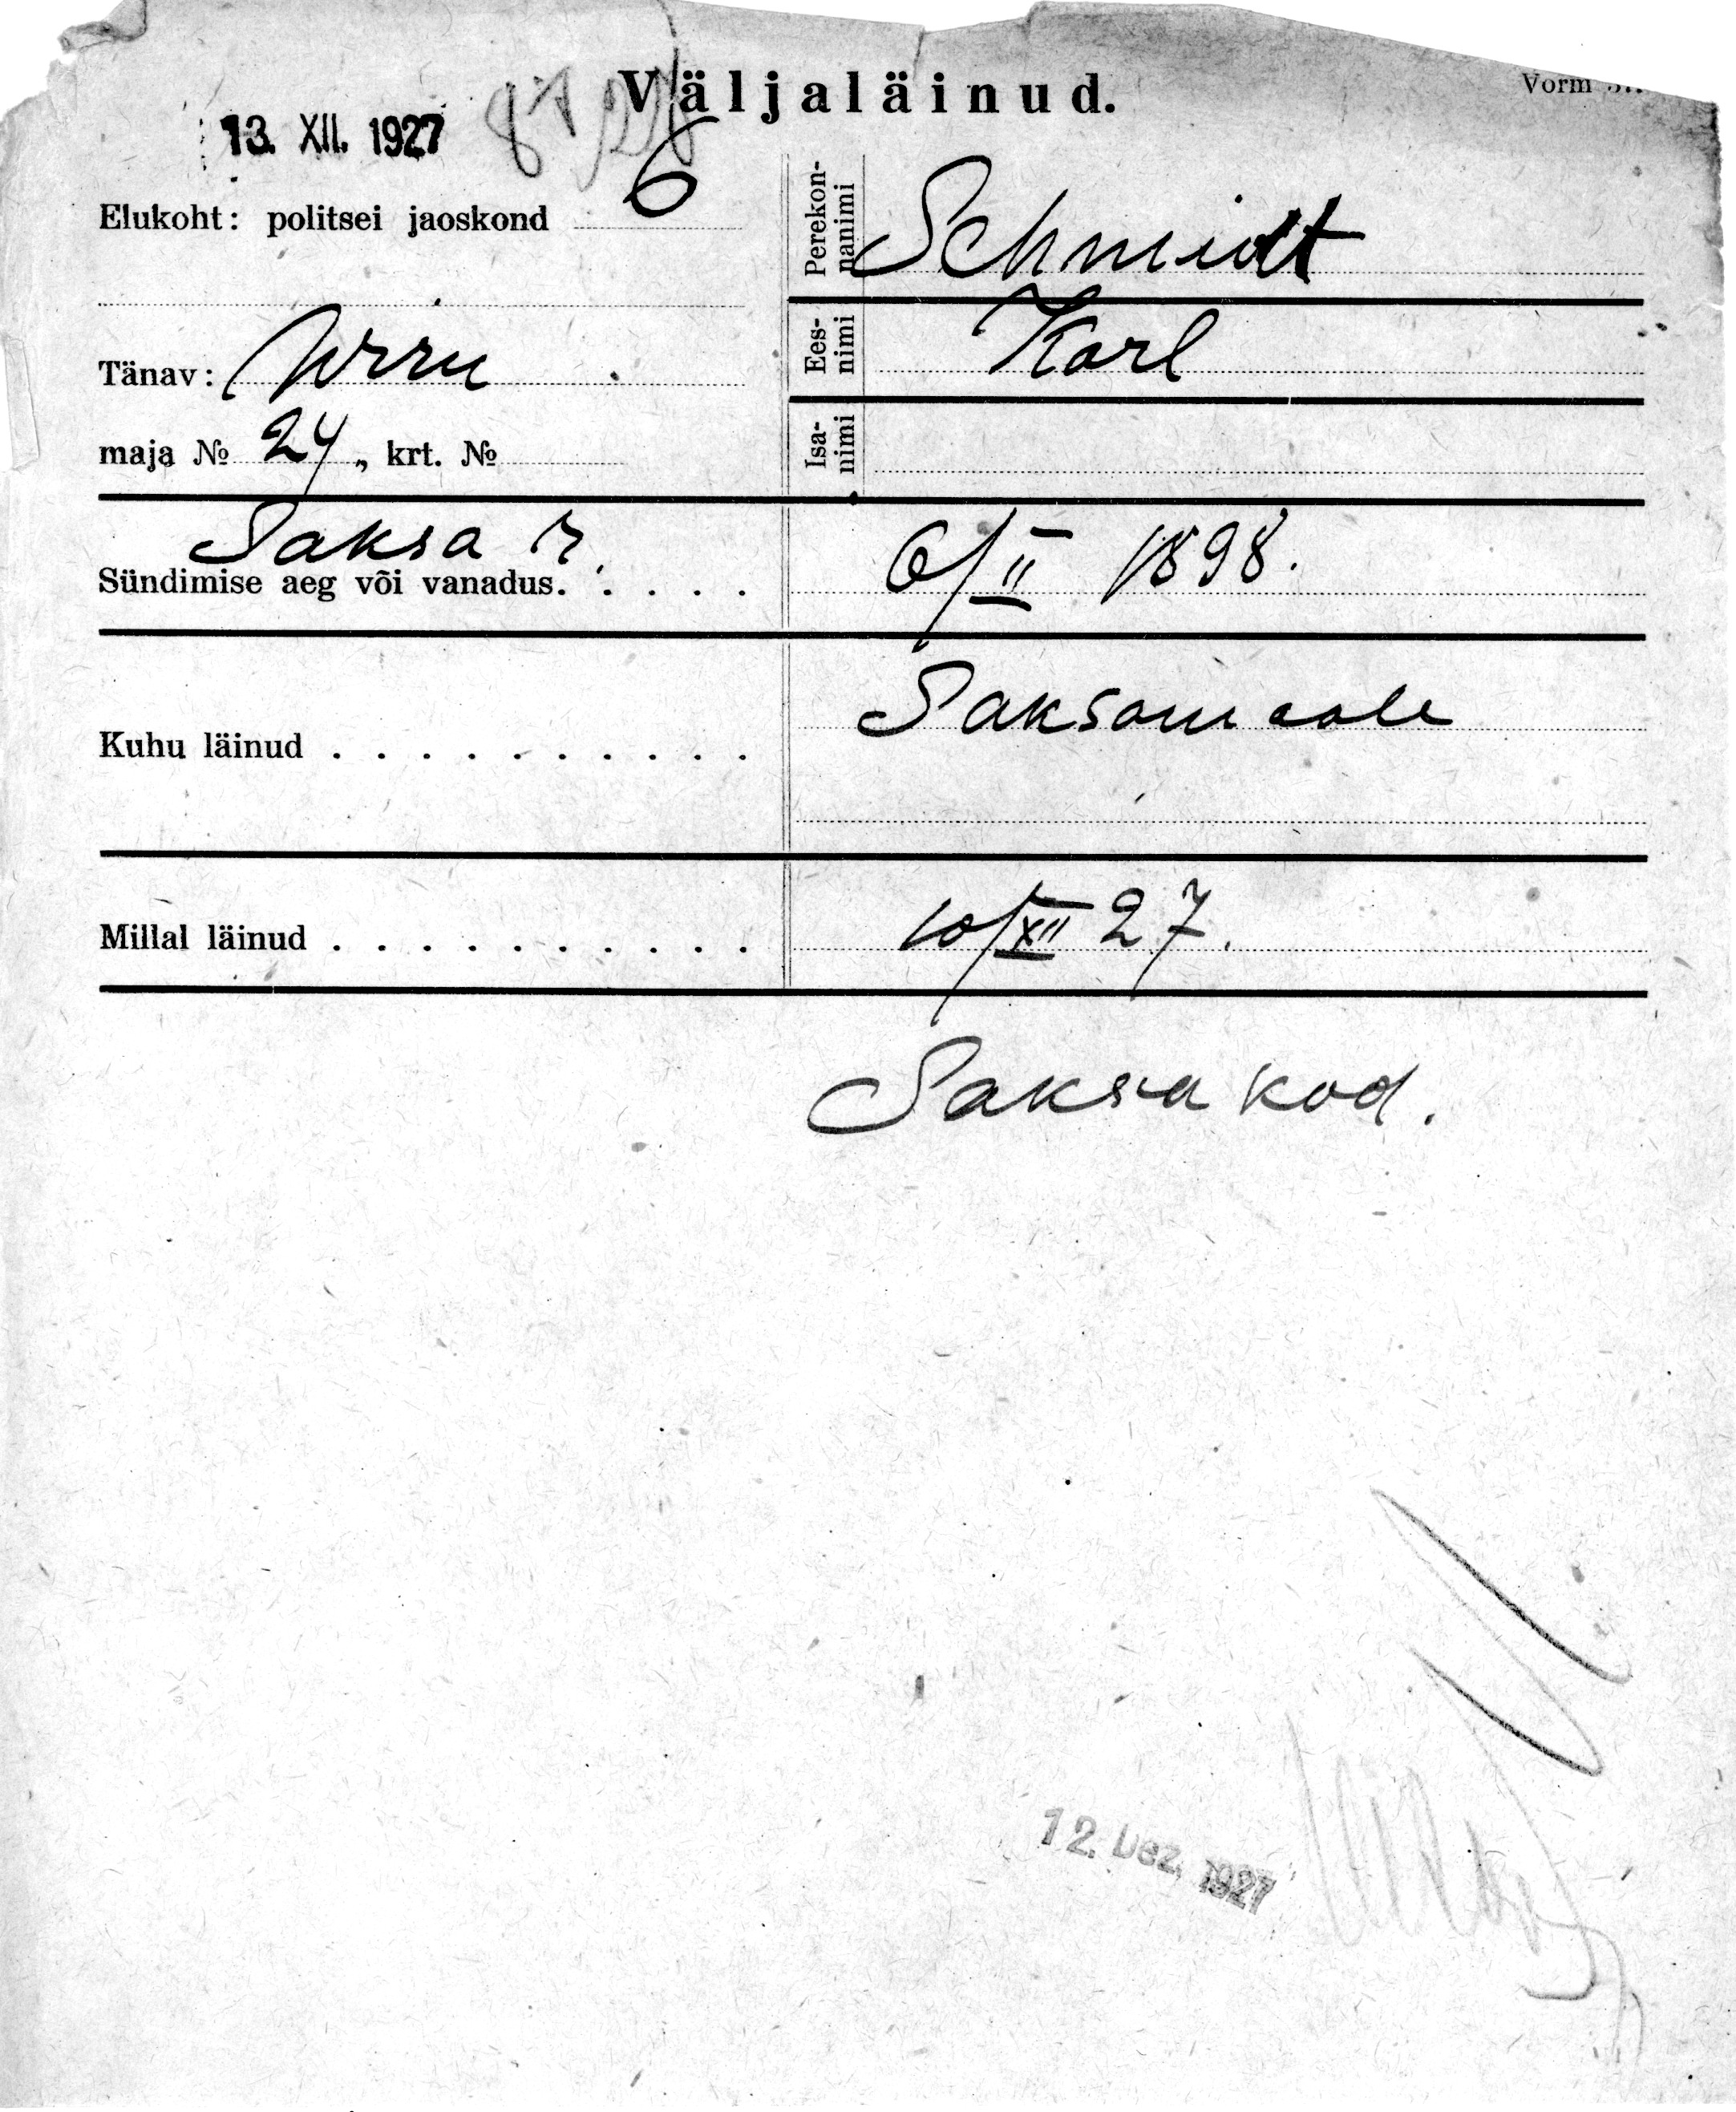 Väljaläinud.
Vorm
13. XII. 1927
Elukoht: politsei jaoskond 6
Perekon-
nanimi
Schmidt
Tänav: Wiru
Ees-
nimi
Karl
maja № 24, krt. №
Isa-
nimi
Saksa r.
Sündimise aeg või vanadus. . . . . .
6/II 1898.
Saksamaale
Kuhu läinud . . . . . . . . . .
Millal läinud . . . . . . . . . .
10/XII 27.
Saksa kod.
12. Dez. 1927